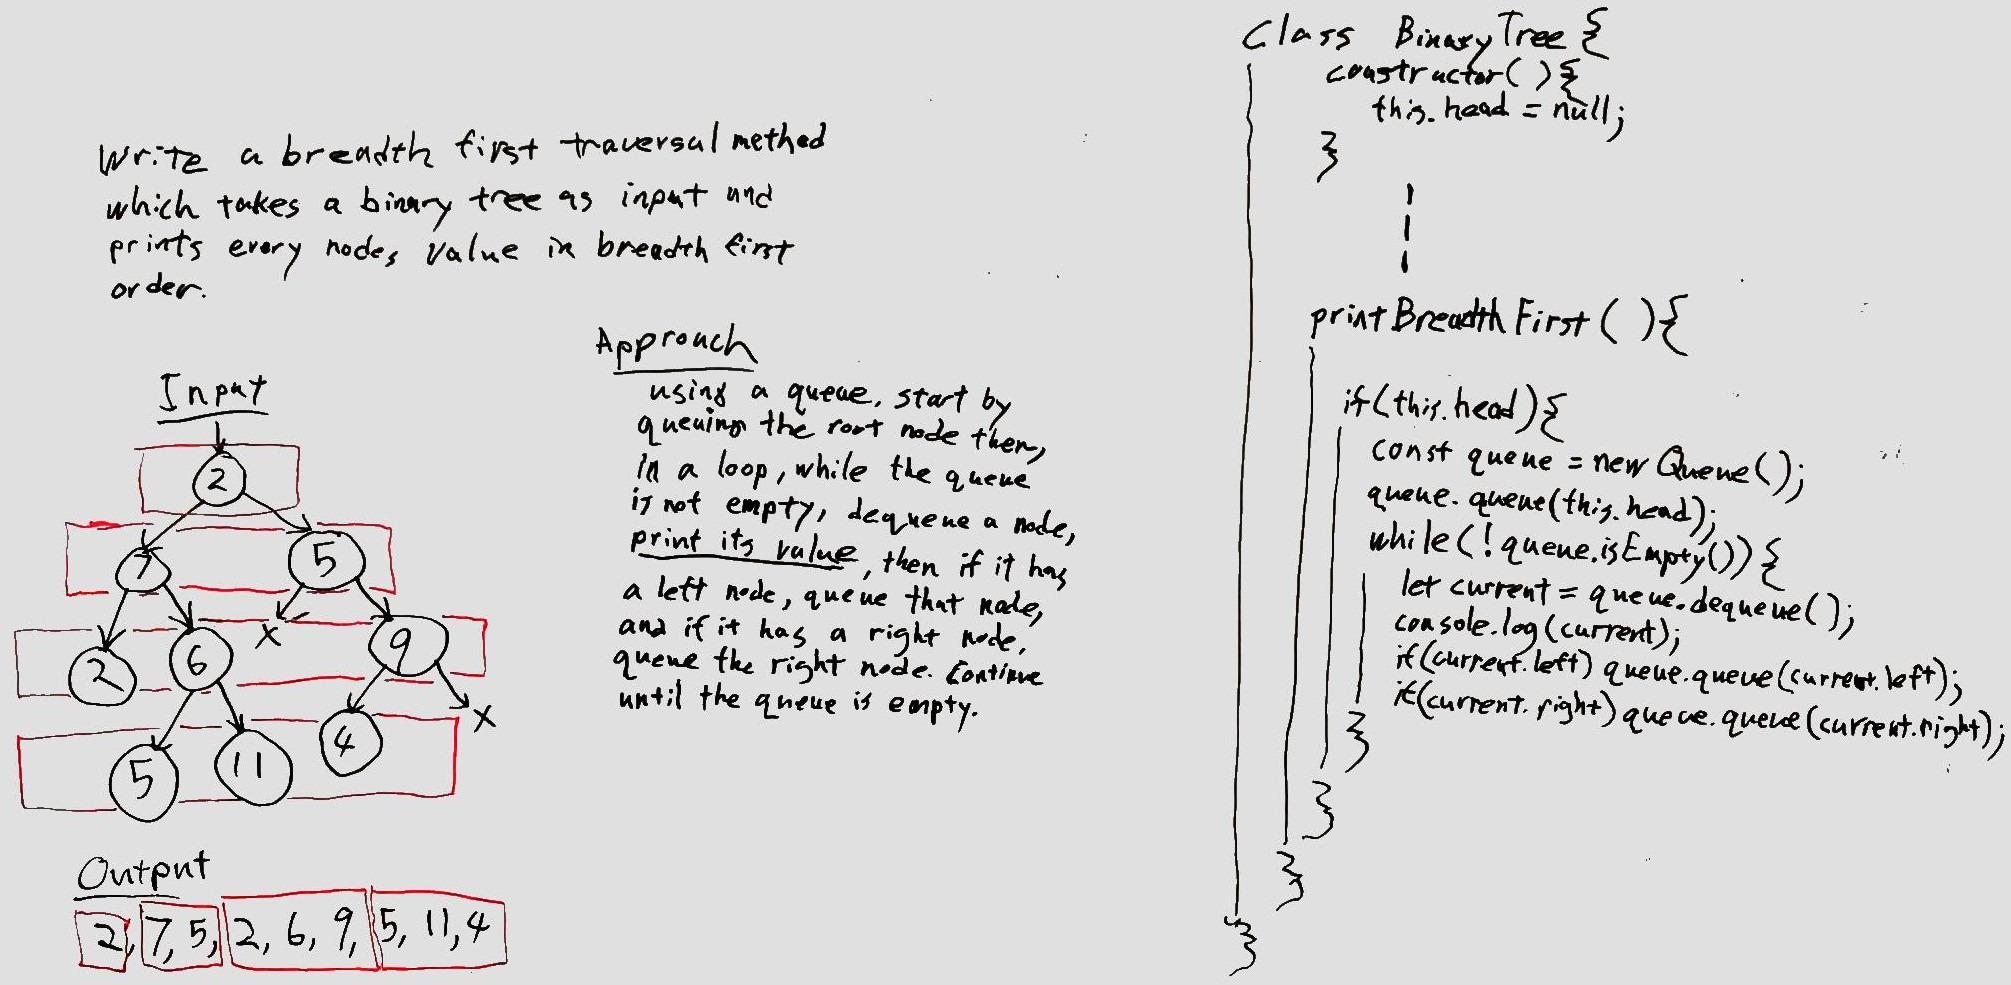 Write a breadth first traversal method
which takes a binary tree as input and
prints every nodes value in breadth first
order.
Input
2
7
5
2
6
x
9
5
11
4
x
Output
2, 7, 5, 2, 6, 9, 5, 11, 4
Approach
using a queue, start by
queuing the root node then,
in a loop, while the queue
is not empty, dequeue a node,
print its value, then if it has
a left node, queue that node,
and if it has a right node,
queue the right node. Continue
until the queue is empty.
Class BinaryTree {
constructor( ){
this.head = null;
}
printBreadthFirst( ){
if(this.head){
const queue = new Queue();
queue.queue(this.head);
while(!queue.isEmpty()){
let current = queue.dequeue();
console.log(current);
if(current.left) queue.queue(current.left);
if(current.right) queue.queue(current.right);
}
}
}
}